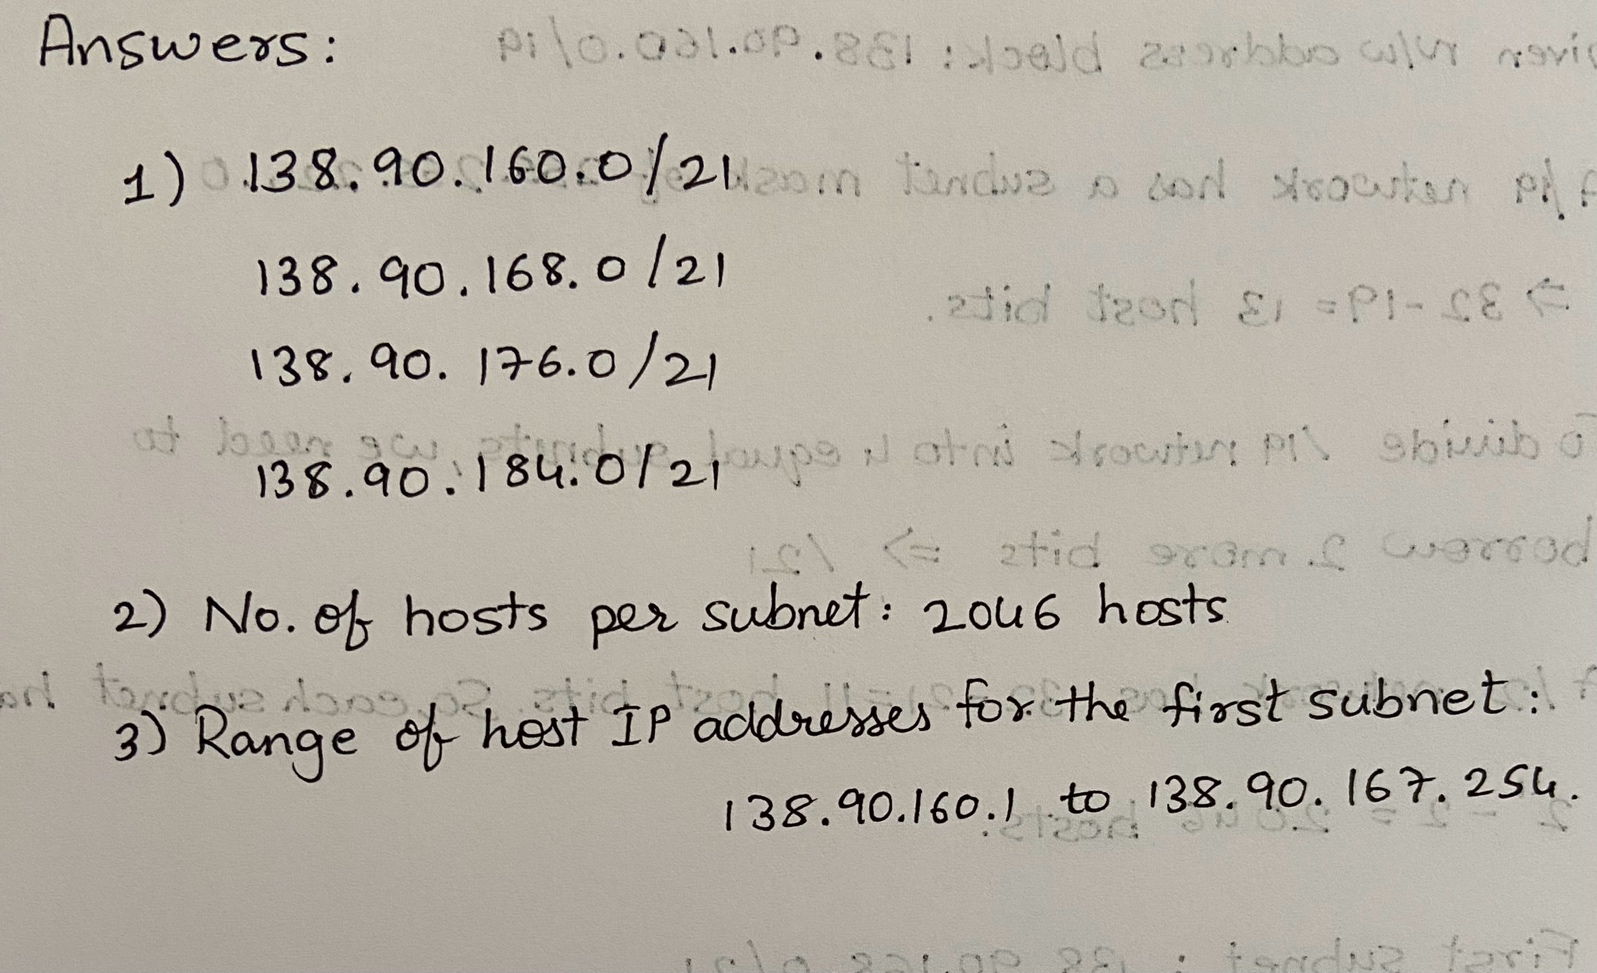 Answers:
1) 138.90.160.0/21
138.90.168.0/21
138.90.176.0/21
138.90.184.0/21
2) No. of hosts per subnet: 2046 hosts
3) Range of host IP addresses for the first subnet:
138.90.160.1 to 138.90.167.254.